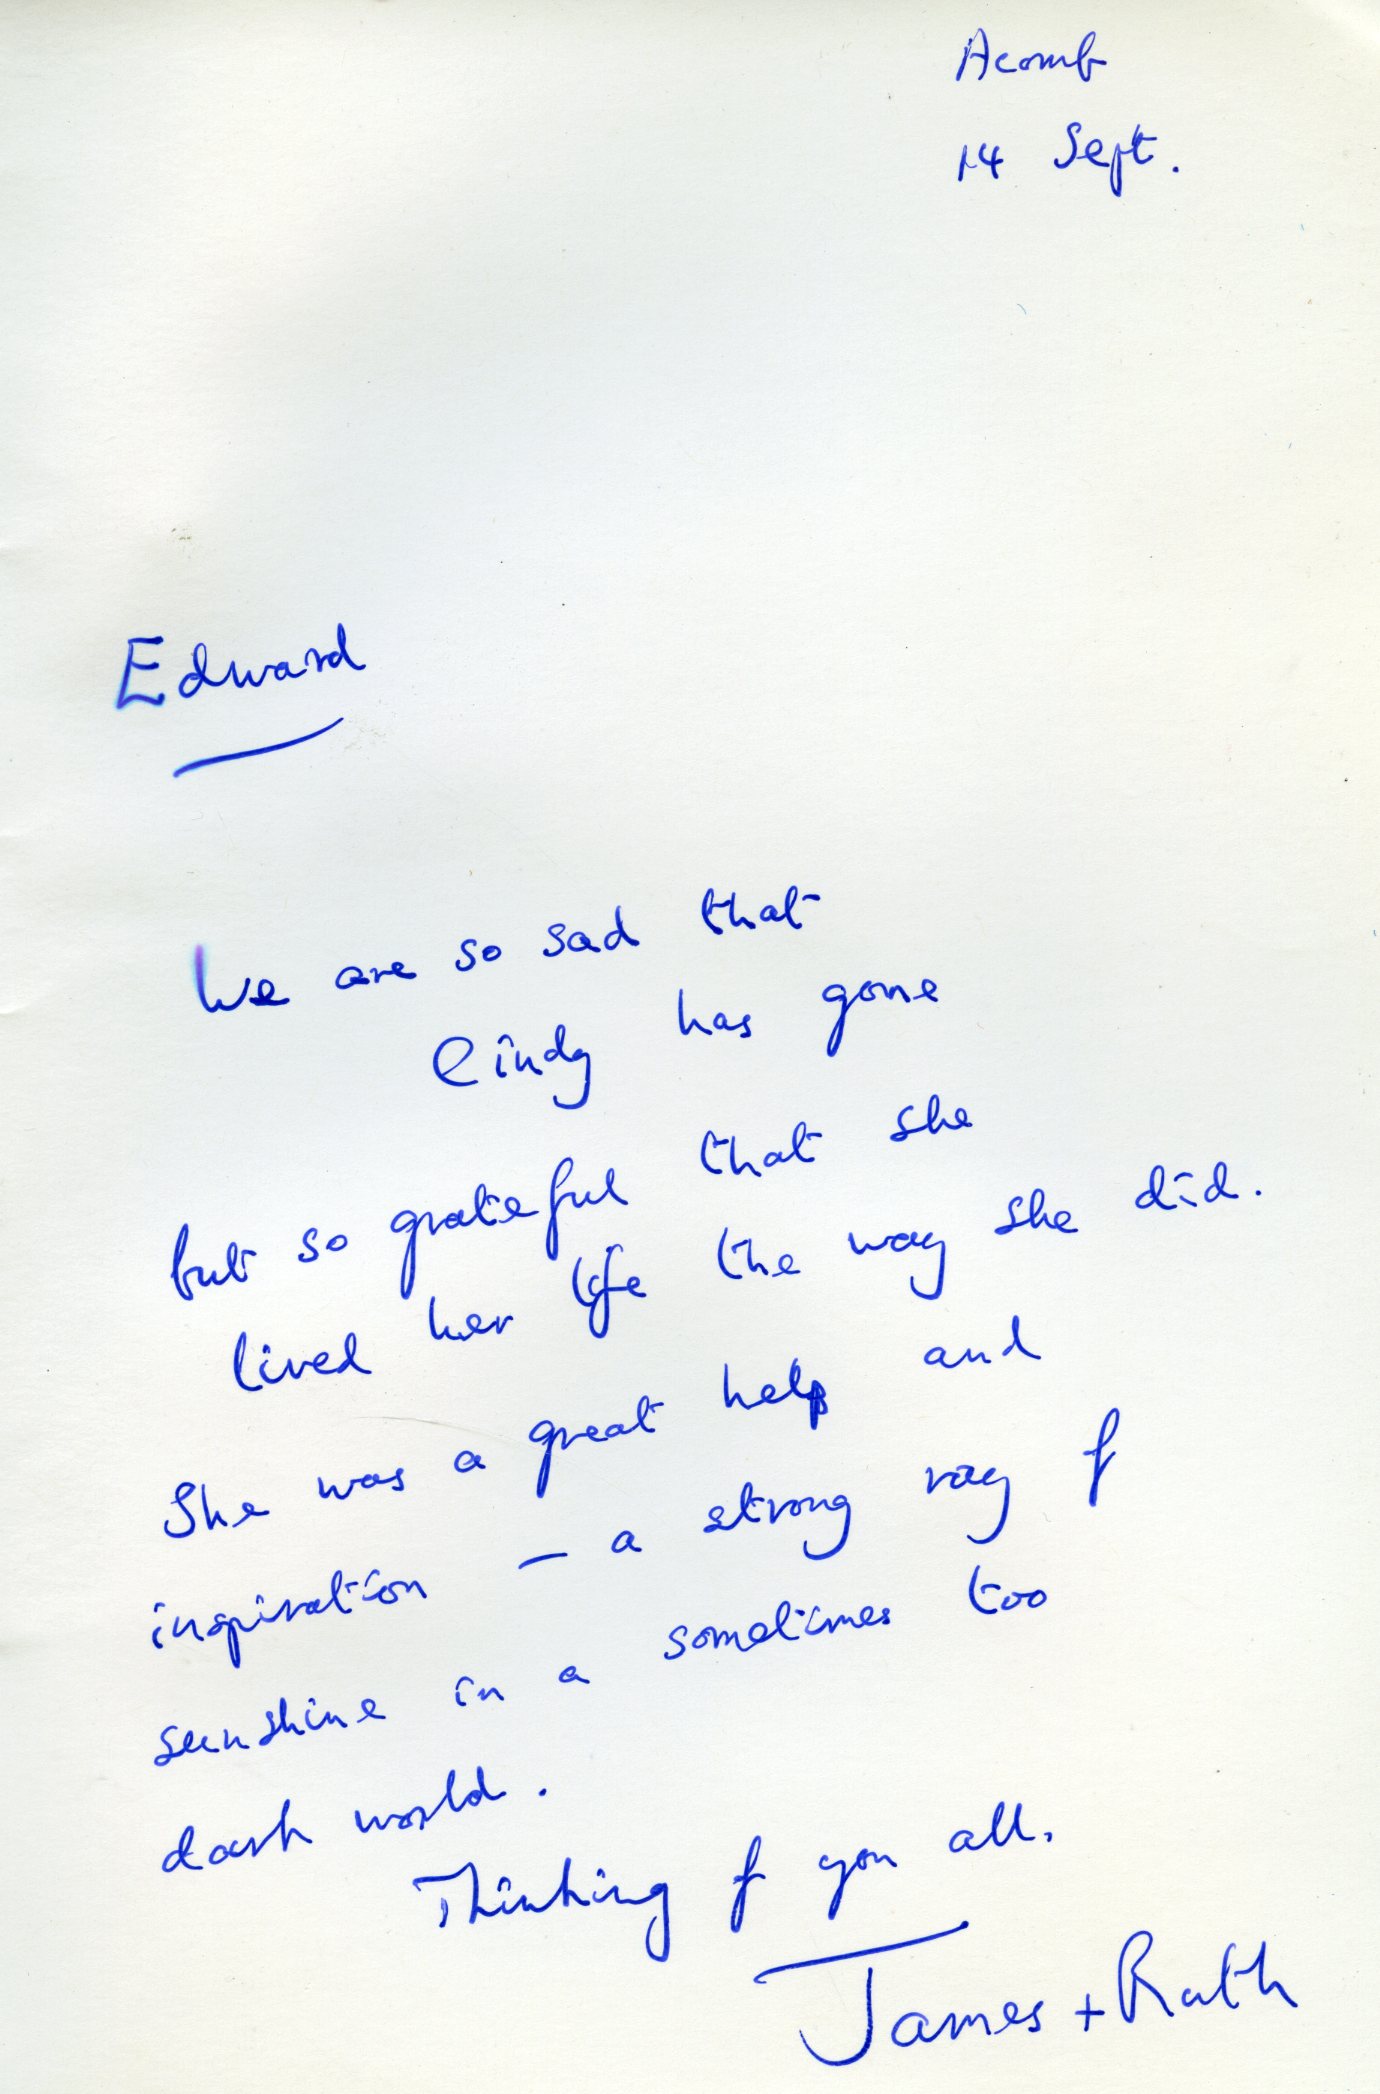 Acomb
14 Sept.
Edward
We are so sad that
Cindy has gone
but so grateful that she
lived her life the way she did.
She was a great help and
inspiration – a strong ray of
sunshine in a sometimes too
dark world.
Thinking of you all.
James + Ruth